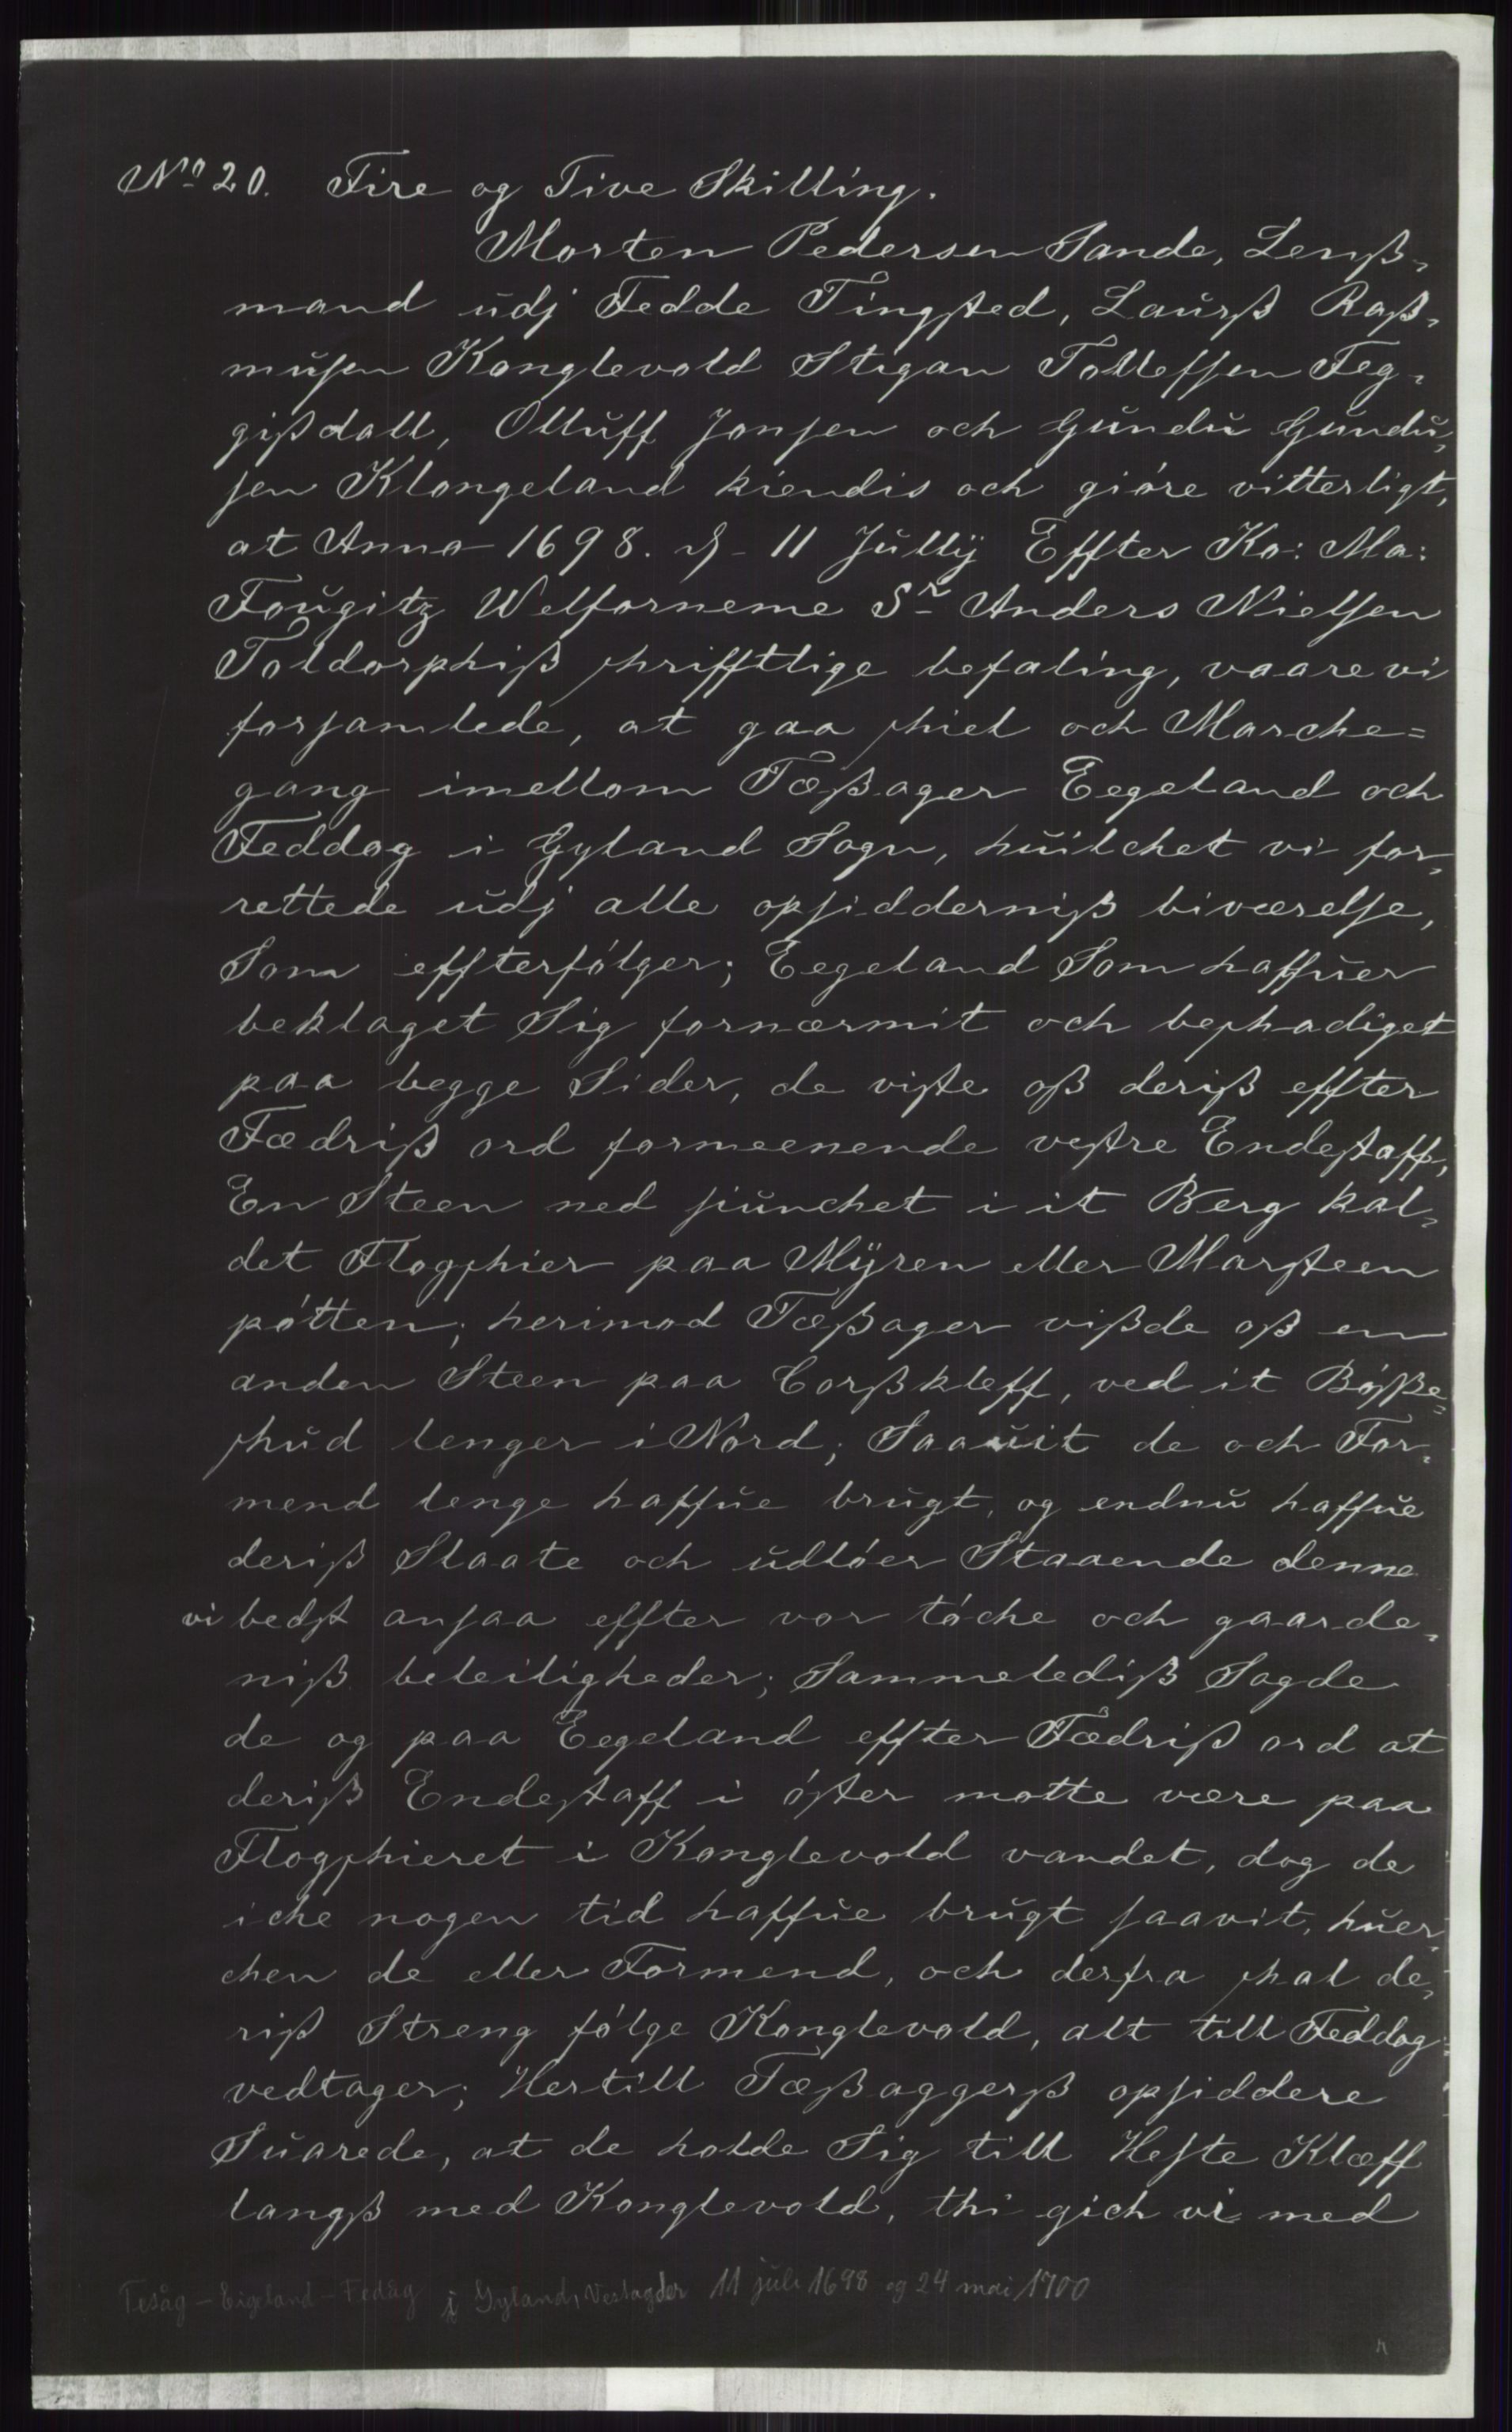 No 20. Fire og Tive Skilling.
Morten Pedersen Sande, Lenß-
mand udj Fedde Tingsted, Laurß Raß-
musen Konglevold Stigan Tollefsen Feg-
gißdall, Olluff Jonsen och Gundu Gundu-
sen Klongeland kiendis och giöre vitterligt,
at Anno 1698. d. 11 Jullÿ Effter Ko: Ma:
Fougitz Welforneme Sr Anders Nielsen
Toldorphiß skrifftlige befaling, vaare vi
forsamlede, at gaa skiel och Marche=
gang imellom Tæßager Eegeland och
Feddog i Gyland Sogn, huilchet vi for-
rettede udj alle opsidderniß biværelse,
Som effterfölger; Eegeland Som haffuer
beklaget Sig fornærmit och beskadiget
paa begge Sider, de viste oß deriß effter
Fædriß ord formeenende vestre Endestaff,
En Steen ned siunchet i it Berg kal-
det Flogskier paa Mÿren eller Marsteen
pötten; herimod Tæßager vißde oß en
anden Steen paa Corßkleff, ved it Bößße-
skud lenger i Nord; Saauit de och For-
mend lenge haffue brugt, og endnu haffue
deriß Slaate och udlöer Staaende denne
vi bedst ansaa effter vor töche och gaarde-
niß beleiligheder; Sammelediß Sagde
de og paa Eegeland effter Fædriß ord at
deriß Endestaff i öster motte være paa
Flogskieret i Konglevold vandet, dog de
iche nogen tid haffue brugt saavit, huer-
chen de eller Formend, och derfra skal de-
riß Streng fölge Konglevold, alt till Feddog
vedtager; Hertill Tæßaggerß opsiddere
Suarede, at de holde Sig till Heste Klæff
langß med Konglevold, thi gich vi med
Tesåg - Eigeland - Fedåg i Gyland, Vestagder 11 juli 1698 og 24 mai 1700